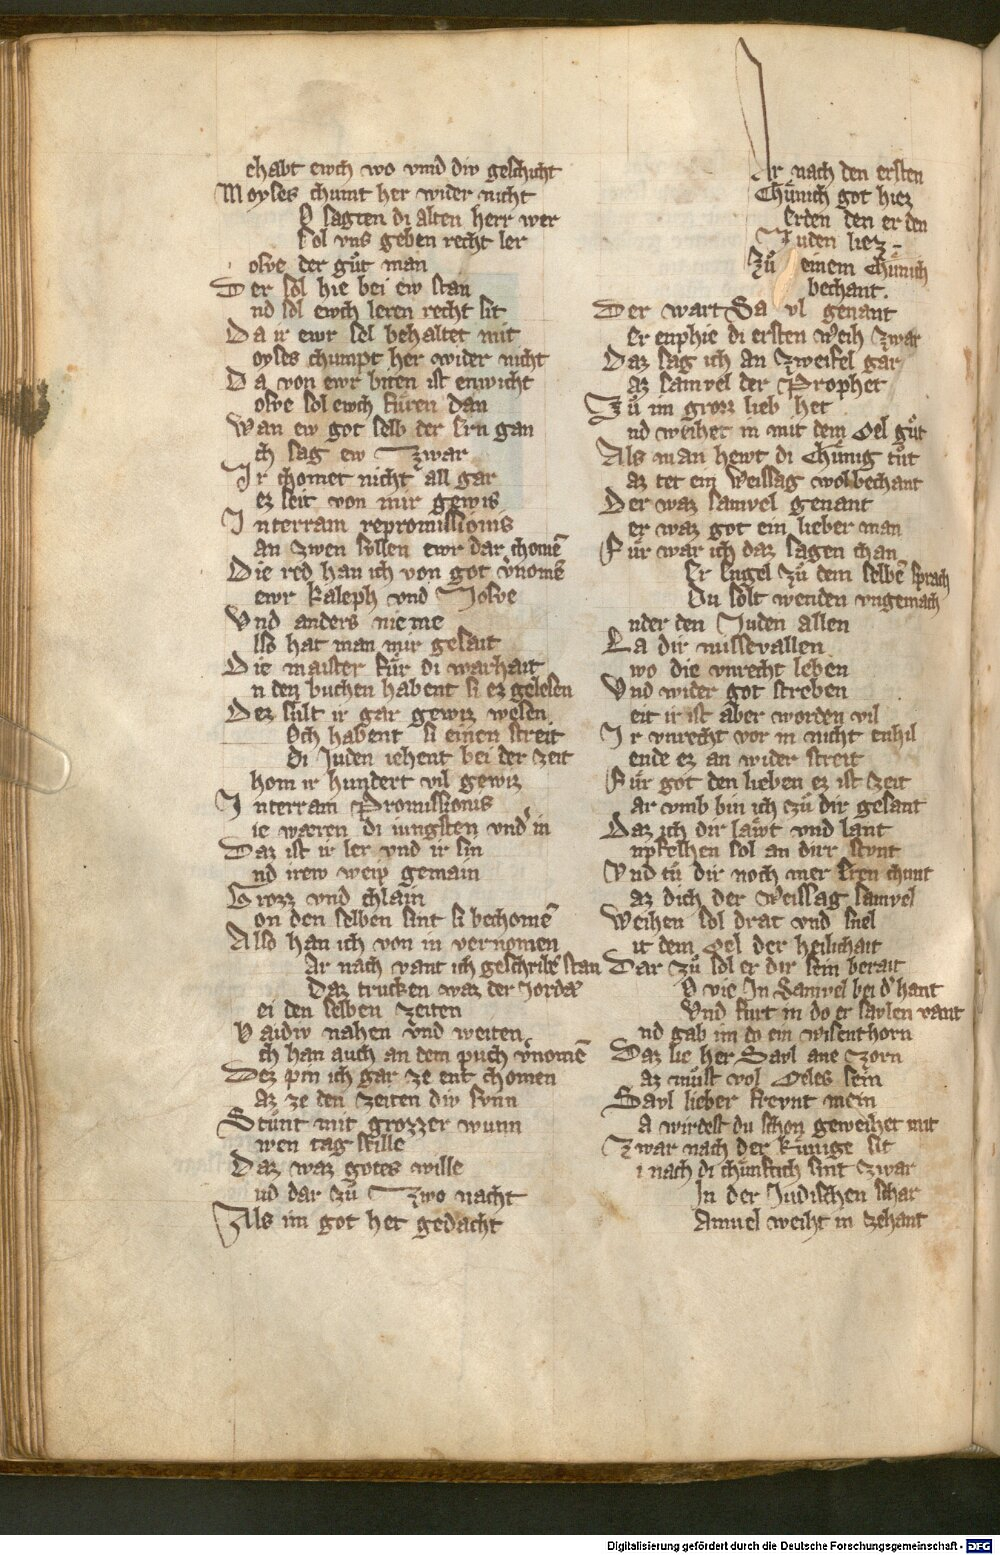 ehabt ewch wo vmd div geschicht
Moyses chumt her wider nicht
O sagten di alten herr wer
sol vns geben recht ler
osve der guͦt man
Der sol hie bei ew stan
nd sol ewch leren recht sit
Da ir ewr sel behaltet mit
oyses chumpt her wider nicht
Da von ewr biten ist enwicht
osve sol ewch fuͤren dan
Wan ew got selb der sin gan
ch sag ew Zwar
Ir chomet nicht all gar
ez seit von mir gewis
Interram repromissionis
an zwen sullen ewr dar chomē
Die red han ich von got v̓nomē
ewr Kaleph vnd Josve
Vnd anders nieme
lso hat man mir gesait
Die maister fuͤr di warhait
n den buchen habent si ez gelesen
Dez sult ir gar gewiz wesen
Och habent si einen streit
di Juden iehent bei der zeit
hom ir hundert vil gewiz
Interram Promissionis
ie wæren di iungsten vnd̓ in
Daz ist ir ler vnd ir sin
nd irew weip gemain
Grozz vnd chlain
on den selben sint si bechomē
Also han ich von in vernomen
Ar nach vant ich geschribē stan
Daz trucken waz der Jordā
ei den selben zeiten
Vaidiv nahen vnd weiten
ch han auch an dem puch v̓nomē
Dez pin ich gar ze ent chomen
az ze den zeiten div sunn
Stuͤnt mit grozzer wunn
wen tag stille
Daz waz gotes wille
nd dar zuͦ Zwo nacht
Als im got het gedacht
Ar nach den ersten
Chuͤnich got hiez
erden den er den
Juden liez -
Zuͦ einem Chuͤnich
bechant.
Der wart Savl genant
Er enphie di ersten weih zwar
Daz sag ich an zweifel gar
az samvel der Prophet
Zuͦ im grozz lieb het
nd weihet in mit dem Oel guͦt
Als man hewt di Chuͤnig tuͦt
az tet ein Weissag wol bechant
Der waz samvel genant
er waz got ein lieber man
Fuͤr war ich daz sagen chan
Er Engel zuͦ dem selbē sprach
Du solt wenden vngemach
nder den Juden allen
La dir missevallen
wo die vnrecht leben
Vnd wider got streben
eit ir ist aber worden vil
Ir vnrecht vor in nicht enhil
ende ez an wider streit
Fuͤr got den lieben ez ist zeit
ar vmb bin ich czuͦ dir gesant
Daz ich dir laͤwt vnd lant
npfelhen sol an dirr stunt
Vnd tuͦ dir noch mer eren chunt
az dich der weissag samvel
Weihen sol drat vnd snel
it dem Oel der heilichait
Dar zuͦ sol er dir sein berait
O vie In Samvel bei d̓ hant
Vnd furt in do er savlen vant
nd gab im do ein wisenthorn
Daz lie her Savl ane zorn
az muͤst vol Oeles sein
Savl lieber freynt mein
a wirdest du schon geweihet mit
Zwar nach der kuͤnige sit
i nach di chuͤnftich sint zwar
In der Judischen schar
Amuel weiht in zehant
Digitalisierung gefördert durch die Deutsche Forschungsgemeinschaft - DFG